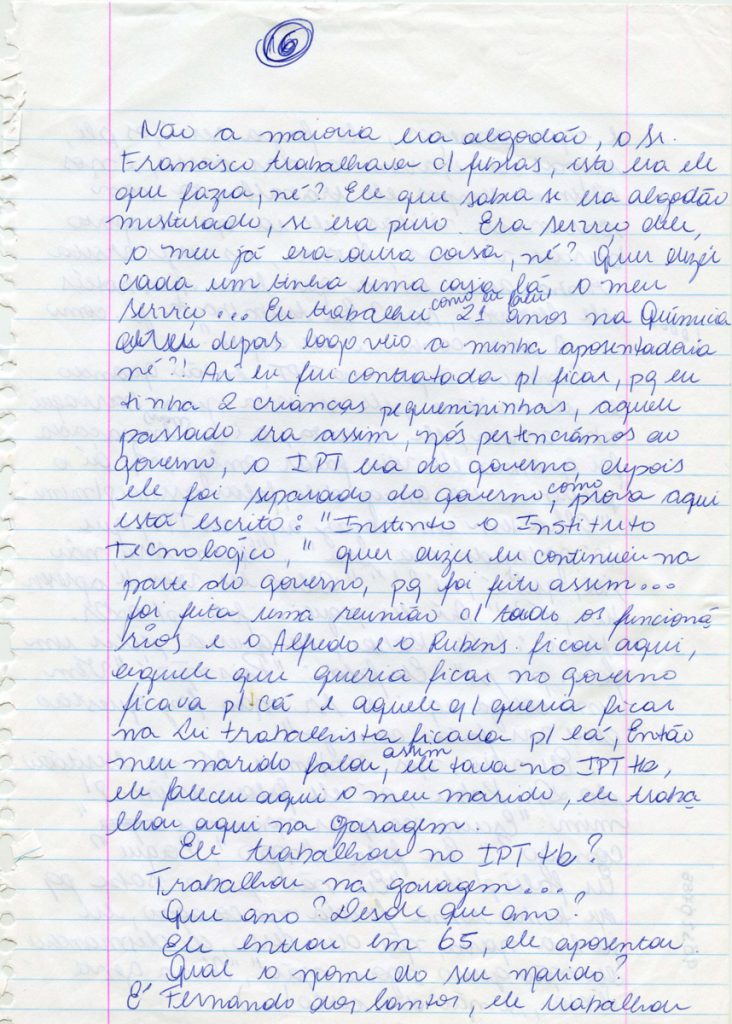 16
Não a maioria era algodão, o Sr.
Francisco trabalhava c/ fibras, isto era ele
que fazia, né? Ele que sabia se era algodão
misturado, se era puro. Era serviço dele,
o meu já era outra coisa, né? Quer dizer
cada um tinha uma coisa lá, o meu
serviço... Eu trabalhei como eu falei 21 anos na Química
depois logo veio a minha aposentadoria
né?! Aí eu fui contratada p/ ficar, pq eu
tinha 2 crianças pequenininhas, aquele
passado era assim, nós pertencíamos ao
governo, o IPT era do governo, depois
ele foi separado do governo, como prova aqui
está escrito: "Instinto o Instituto
Tecnologíco," quer dizer eu continuei na
parte do governo, pq foi feito assim...
foi feita uma reunião c/ todo os funcioná
rios e o Alfredo e o Rubens. ficou aqui,
aquele que queria ficar no governo
ficava p/ cá e aquele q/ queria ficar
na Lei trabalhista ficava p/ lá, Então
meu marido falou, assim ele tava no IPT tb,
ele faleceu aqui o meu marido, ele traba
lhou aqui na garagem
Ele trabalhou no IPT tb?
Trabalhou na garagem...
Que ano? Desde que ano?
Ele entrou em 65, ele aposentou.
Qual o nome do seu marido?
É Fernando dos Santos, ele trabalhou